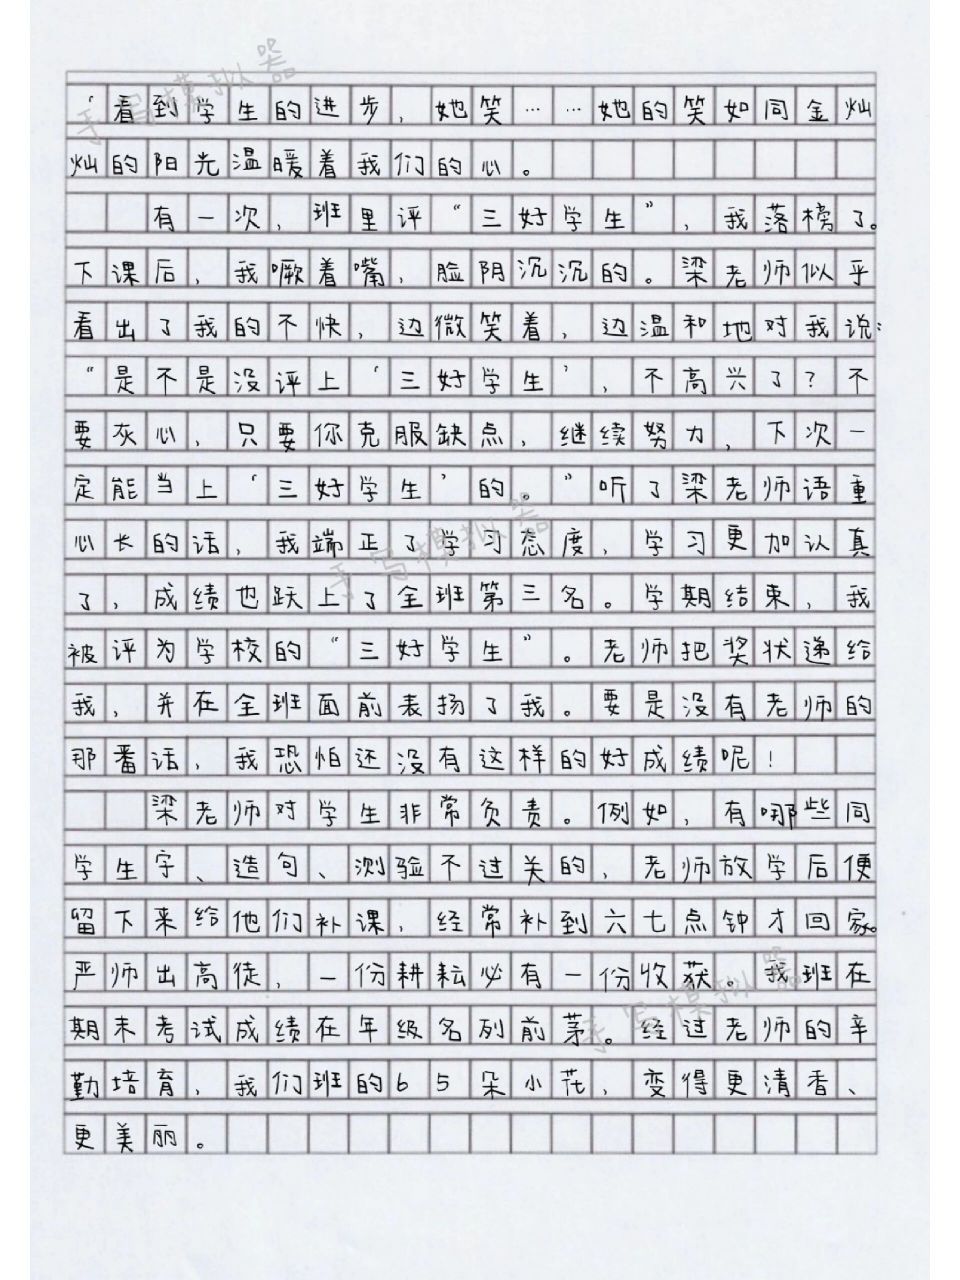 ‘看到学生的进步，她笑……她的笑如同金灿
灿的阳光温暖着我们的心。
有一次，班里评“三好学生”，我落榜了。
下课后，我噘着嘴，脸阴沉沉的。梁老师似乎
看出了我的不快，边微笑着，边温和地对我说：
“是不是没评上‘三好学生’，不高兴了？不
要灰心，只要你克服缺点，继续努力，下次一
定能当上‘三好学生’的。”听了梁老师语重
心长的话，我端正了学习态度，学习更加认真
了，成绩也跃上了全班第三名。学期结束，我
被评为学校的“三好学生”。老师把奖状递给
我，并在全班面前表扬了我。要是没有老师的
那番话，我恐怕还没有这样的好成绩呢！
梁老师对学生非常负责。例如，有哪些同
学生字、造句、测验不过关的，老师放学后便
留下来给他们补课，经常补到六七点钟才回家。
严师出高徒，一份耕耘必有一份收获。我班在
期末考试成绩在年级名列前茅。经过老师的辛
勤培育，我们班的65朵小花，变得更清香、
更美丽。
手写模拟器
手写模拟器
手写模拟器